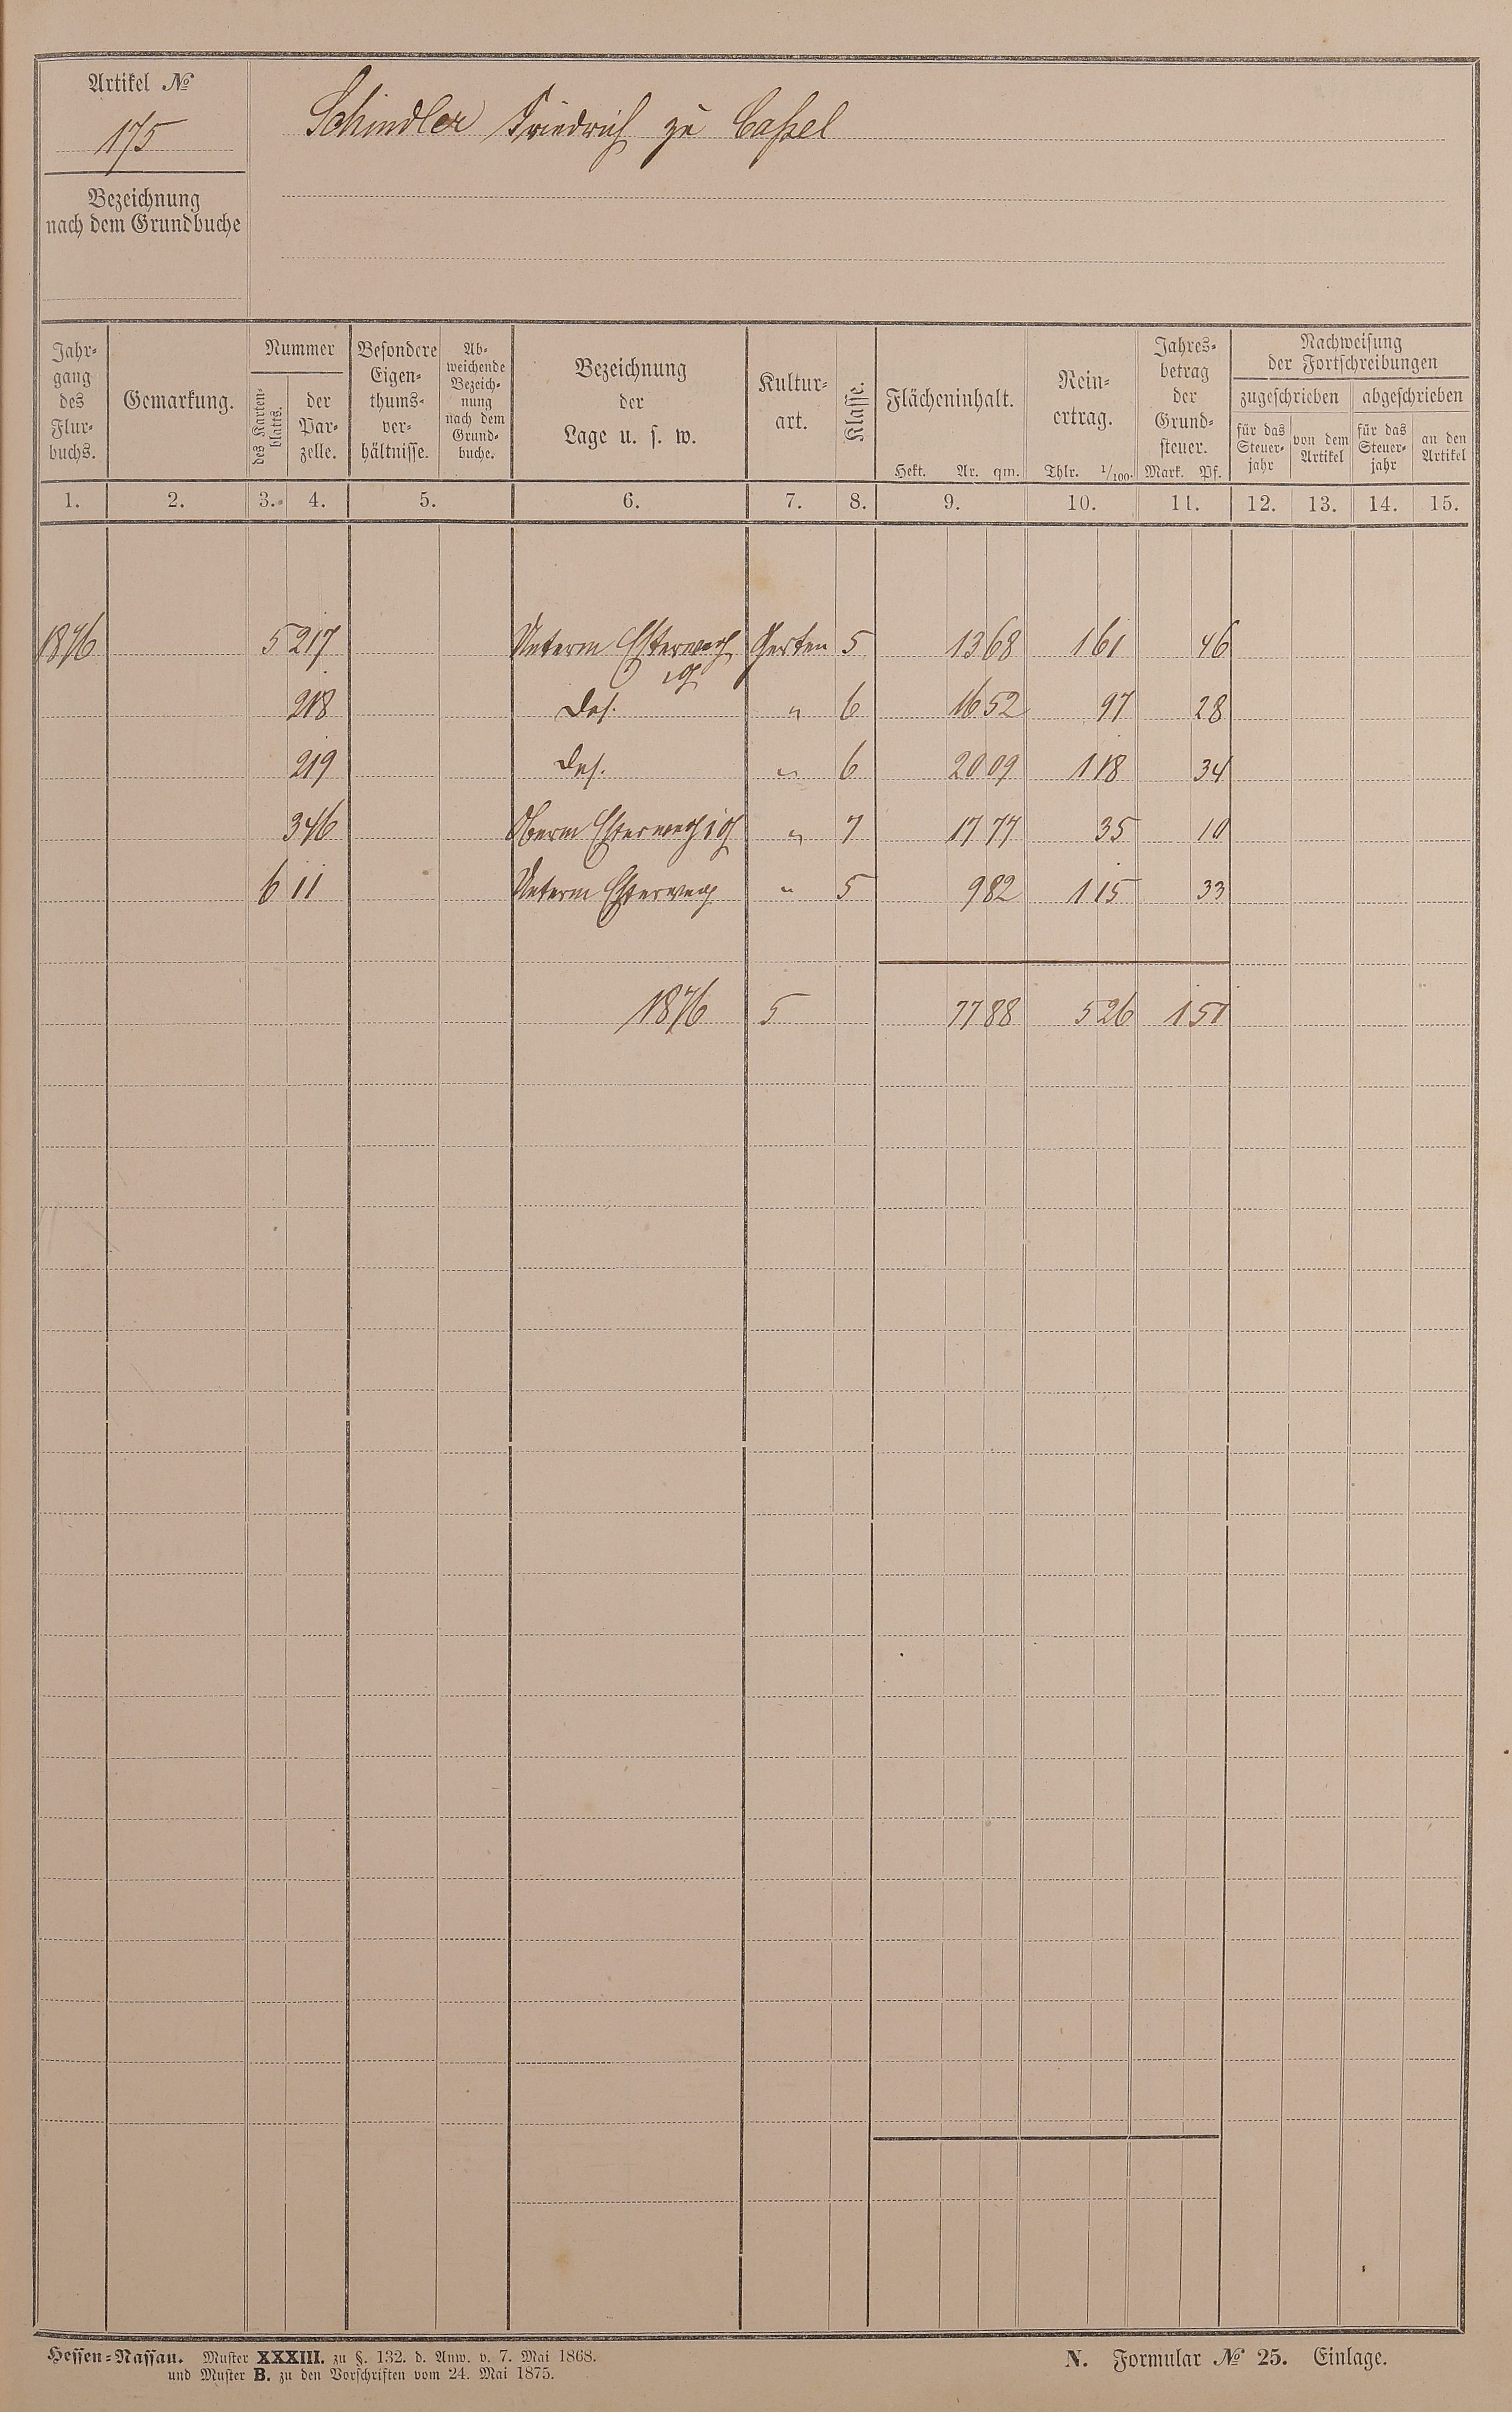 Artikel № 175
Schindler Friedrich zu Caßel
Bezeichnung
nach dem Grundbuche
Jahrgang des Flurbuchs.
Gemarkung.
Nummer
des Kartenblatts.
der Parzelle.
Besondere Eigenthumsverhältnisse.
Abweichende Bezeichnung nach dem Grundbuche.
Bezeichnung der Lage u. s. w.
Kulturart.
Klasse.
Flächeninhalt.
Hekt. Ar. qm.
Reinertrag.
Thlr. 1/100.
Jahresbetrag der Grundsteuer.
Mark. Pf.
Nachweisung der Fortschreibungen
zugeschrieben
für das Steuerjahr
von dem Artikel
abgeschrieben
für das Steuerjahr
an den Artikel
1. 2. 3. 4. 5. 6. 7. 8. 9. 10. 11. 12. 13. 14. 15.
1876 5 217 Unterm Garten 5 13 68 1 61 46
218 Das. " 6 16 52 97 28
219 Das. " 6 20 09 1 18 34
346 Oberm " 7 17 77 35 10
6 11 Unterm " 5 9 82 1 15 33
1876 5 77 88 5 26 1 51
Hessen-Nassau. Muster XXXIII. zu §. 132. d. Anw. v. 7. Mai 1868.
und Muster B. zu den Vorschriften vom 24. Mai 1875.
N. Formular № 25. Einlage.